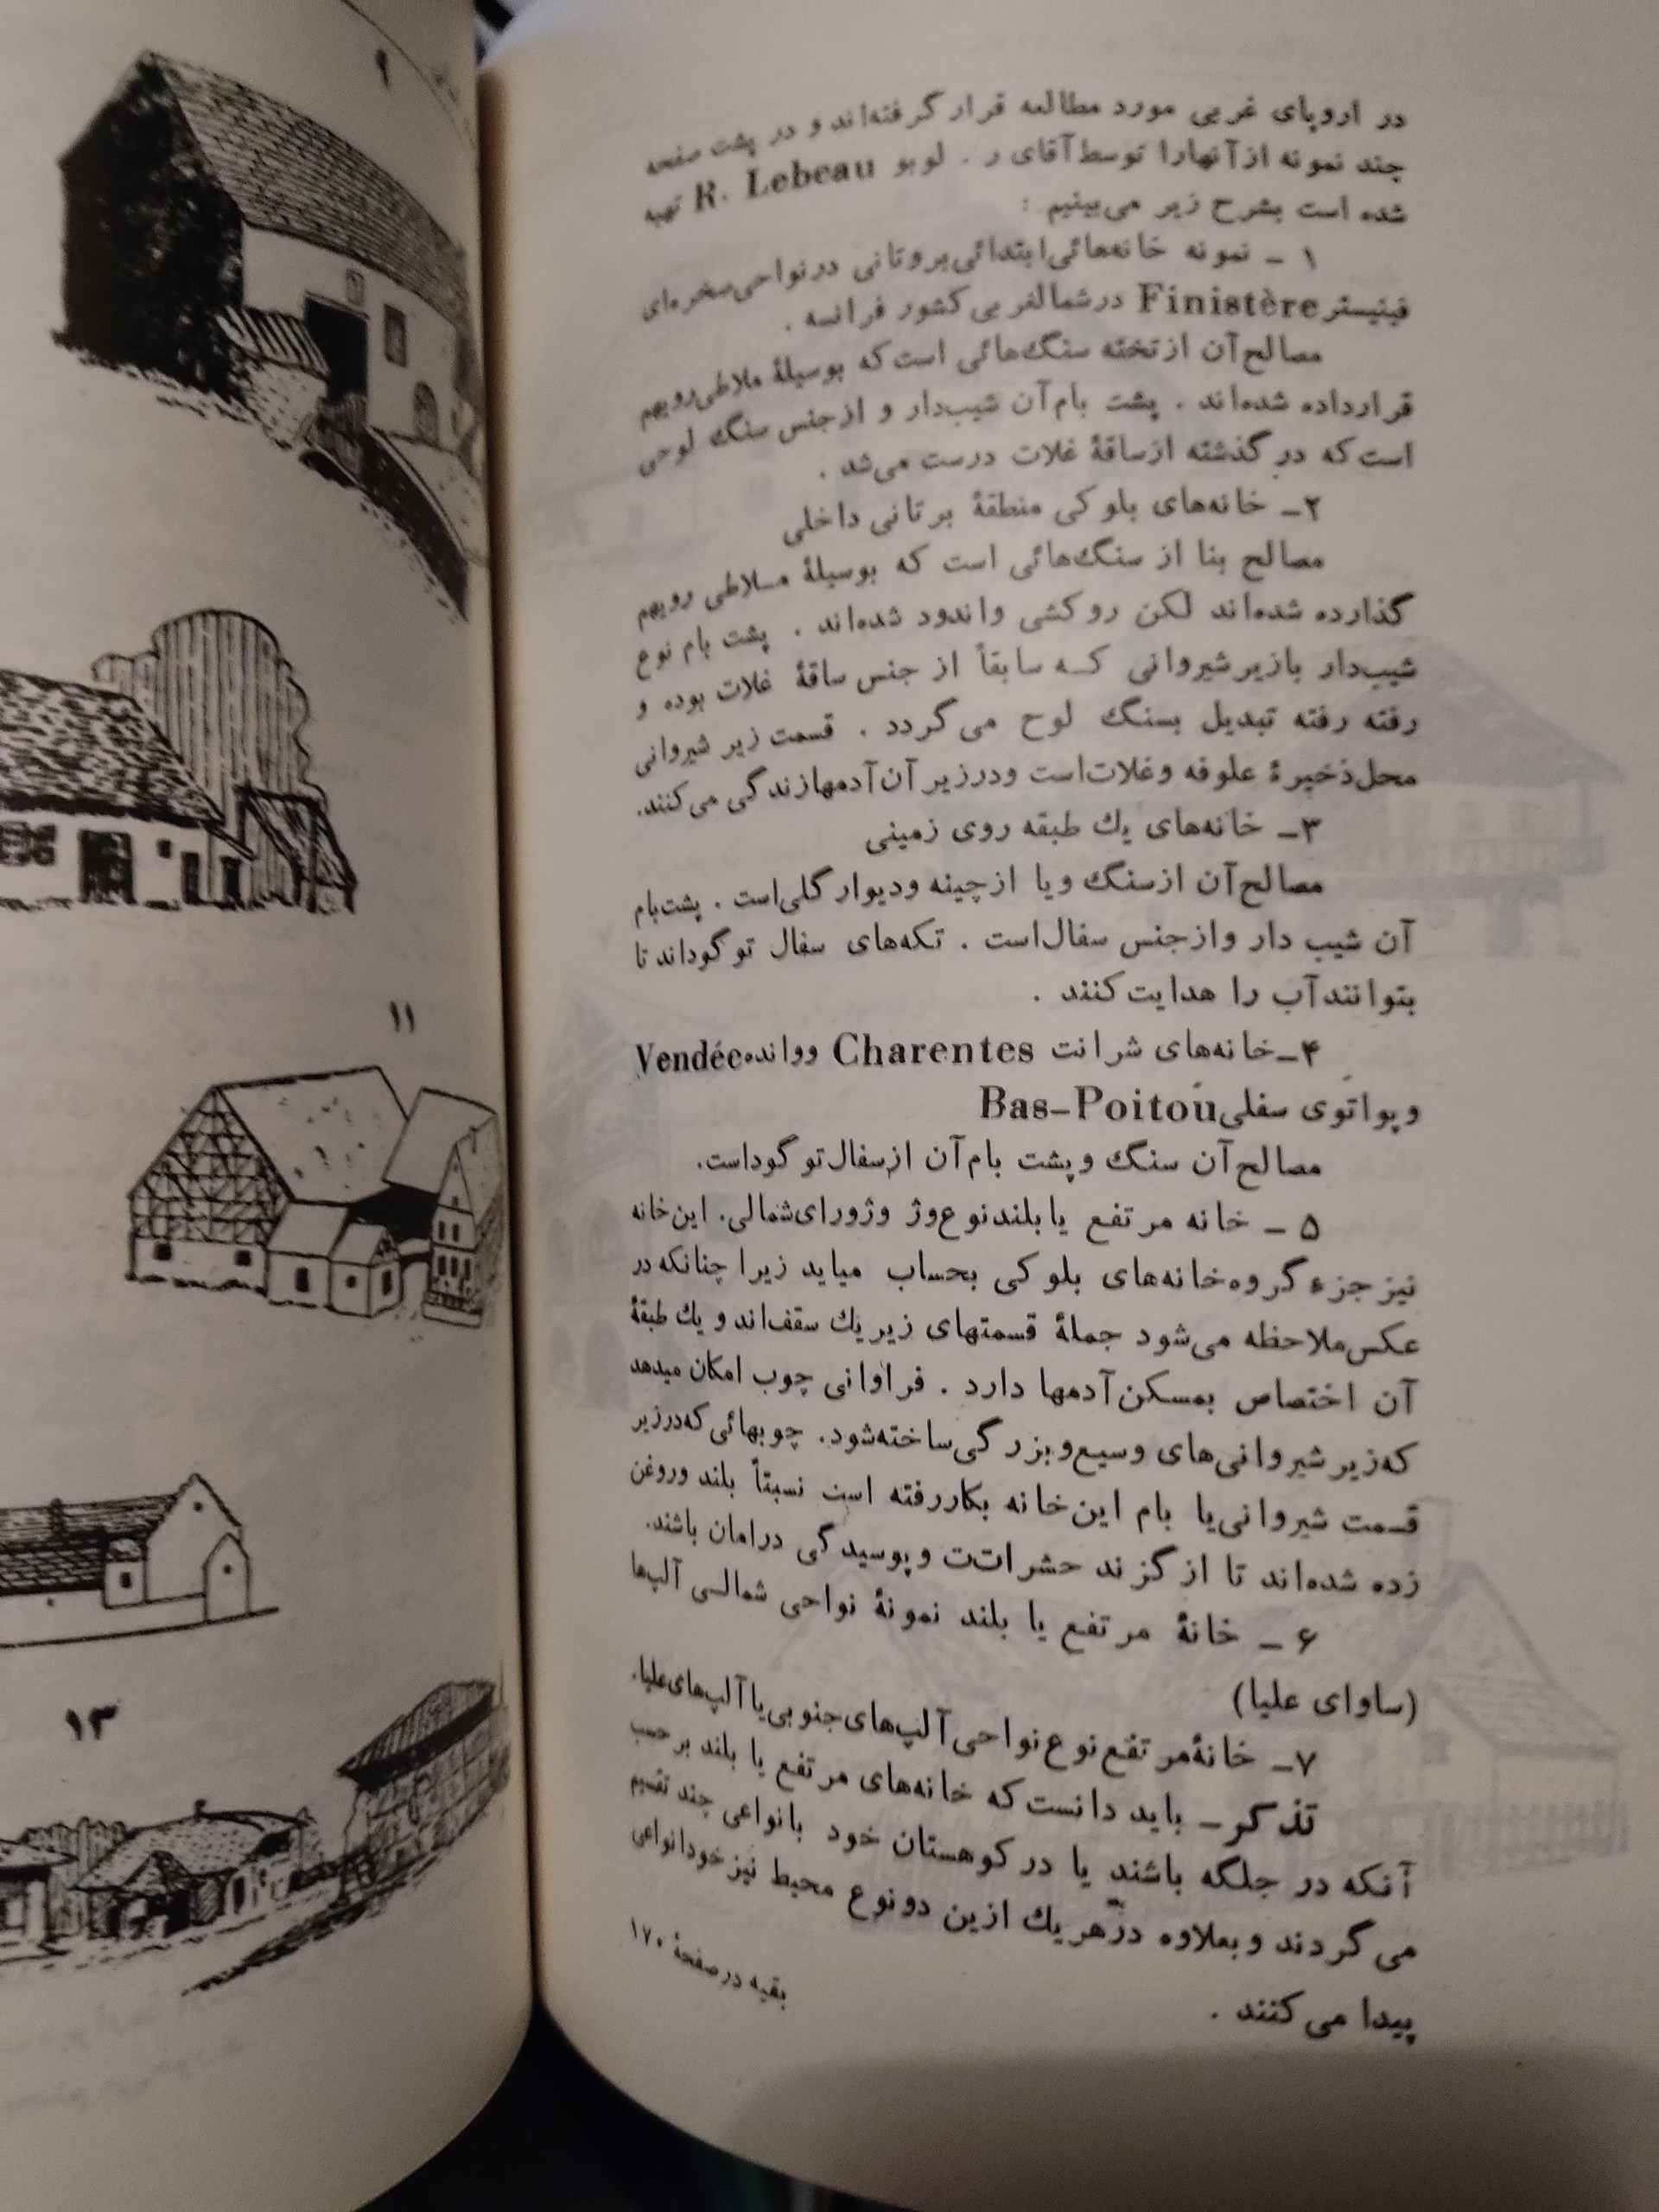 در اروپای غربی مورد مطالعه قرار گرفته‌اند و در پشت صفحه
چند نمونه از آنهارا توسط آقای ر . لوبو R. Lebeau تهیه
شده است بشرح زیر می‌بینیم :
۱ ــ نمونه خانه‌هائی ابتدائی بروتانی در نواحی صخره‌ای
فینیستر Finistère در شمالغربی کشور فرانسه .
مصالح آن از تخته سنگ‌هائی است که بوسیلهٔ ملاطی رویهم
قرار داده شده‌اند . پشت بام آن شیب‌دار و از جنس سنگ لوحی
است که در گذشته از ساقهٔ غلات درست می‌شد .
۲ــ خانه‌های بلوکی منطقهٔ برتانی داخلی
مصالح بنا از سنگ‌هائی است که بوسیلهٔ مـلاطی رویهم
گذارده شده‌اند لکن روکشی و اندود شده‌اند . پشت بام نوع
شیب‌دار بازیر شیروانی کـه سابقاً از جنس ساقهٔ غلات بوده و
رفته رفته تبدیل بسنگ لوح می‌گردد . قسمت زیر شیروانی
محل ذخیرهٔ علوفه و غلات است و در زیر آن آدمها زندگی می‌کنند.
۳ــ خانه‌های یك طبقه روی زمینی
مصالح آن از سنگ و یا از چینه و دیوار گلی است . پشت‌بام
آن شیب دار و از جنس سفال است . تکه‌های سفال توگود‌اند تا
بتوانند آب را هدایت کنند .
۴ــ خانه‌های شرانت Charentes و وانده Vendée
و پواتوی سفلی Bas-Poitou
مصالح آن سنگ و پشت بام آن از سفال توگود است.
۵ ــ خانه مرتفع یا بلند نوع وژ و ژورای شمالی. این خانه
نیز جزء گروه خانه‌های بلوکی بحساب میاید زیرا چنانکه در
عکس ملاحظه می‌شود جملهٔ قسمتهای زیر یك سقف‌اند و یك طبقهٔ
آن اختصاص بمسکن آدمها دارد . فراوانی چوب امکان میدهد
که زیر شیروانی‌های وسیع و بزرگی ساخته شود. چوبهائی که در زیر
قسمت شیروانی یا بام این خانه بکار رفته است نسبتاً بلند و روغن
زده شده‌اند تا از گزند حشرات‌ت و پوسیدگی در امان باشند.
۶ ــ خانهٔ مرتفع یا بلند نمونهٔ نواحی شمالـی آلپ‌ها
(ساوای علیا)
۷ــ خانهٔ مرتفع نوع نواحی آلپ‌های جنوبی یا آلپ‌های علیا.
تذکر ــ باید دانست که خانه‌های مرتفع یا بلند بر حسب
آنکه در جلگه باشند یا در کوهستان خود بانواعی چند تقسیم
می‌گردند و بعلاوه در هر یك ازین دو نوع محیط نیز خود انواعی
پیدا می‌کنند .
بقیه در صفحهٔ ۱۷۰
۹
۱۱
۱۳